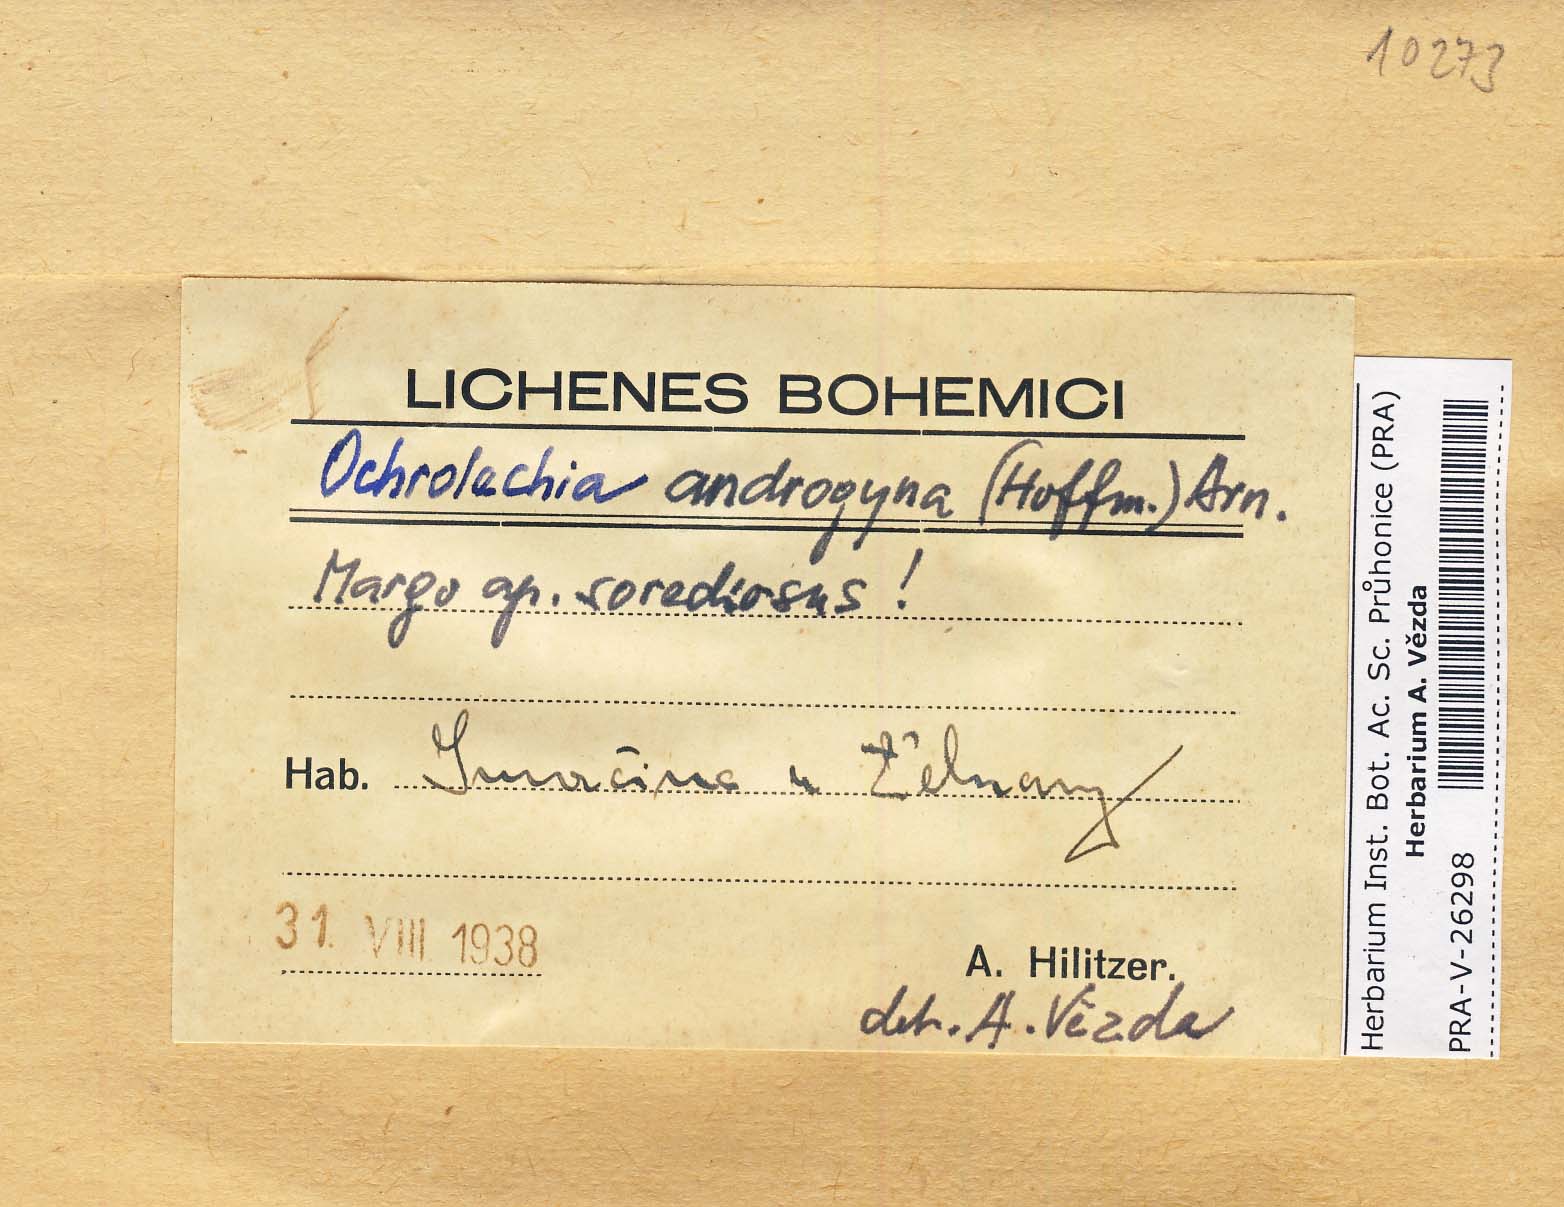 10273
LICHENES BOHEMICI
Ochrolechia androgyna (Hoffm.) Arn.
Margo ap. sorediosus!
Hab. Smrčina u Želnavy
31. VIII 1938
A. Hilitzer.
det. A. Vězda
Herbarium Inst. Bot. Ac. Sc. Průhonice (PRA)
Herbarium A. Vězda
PRA-V-26298